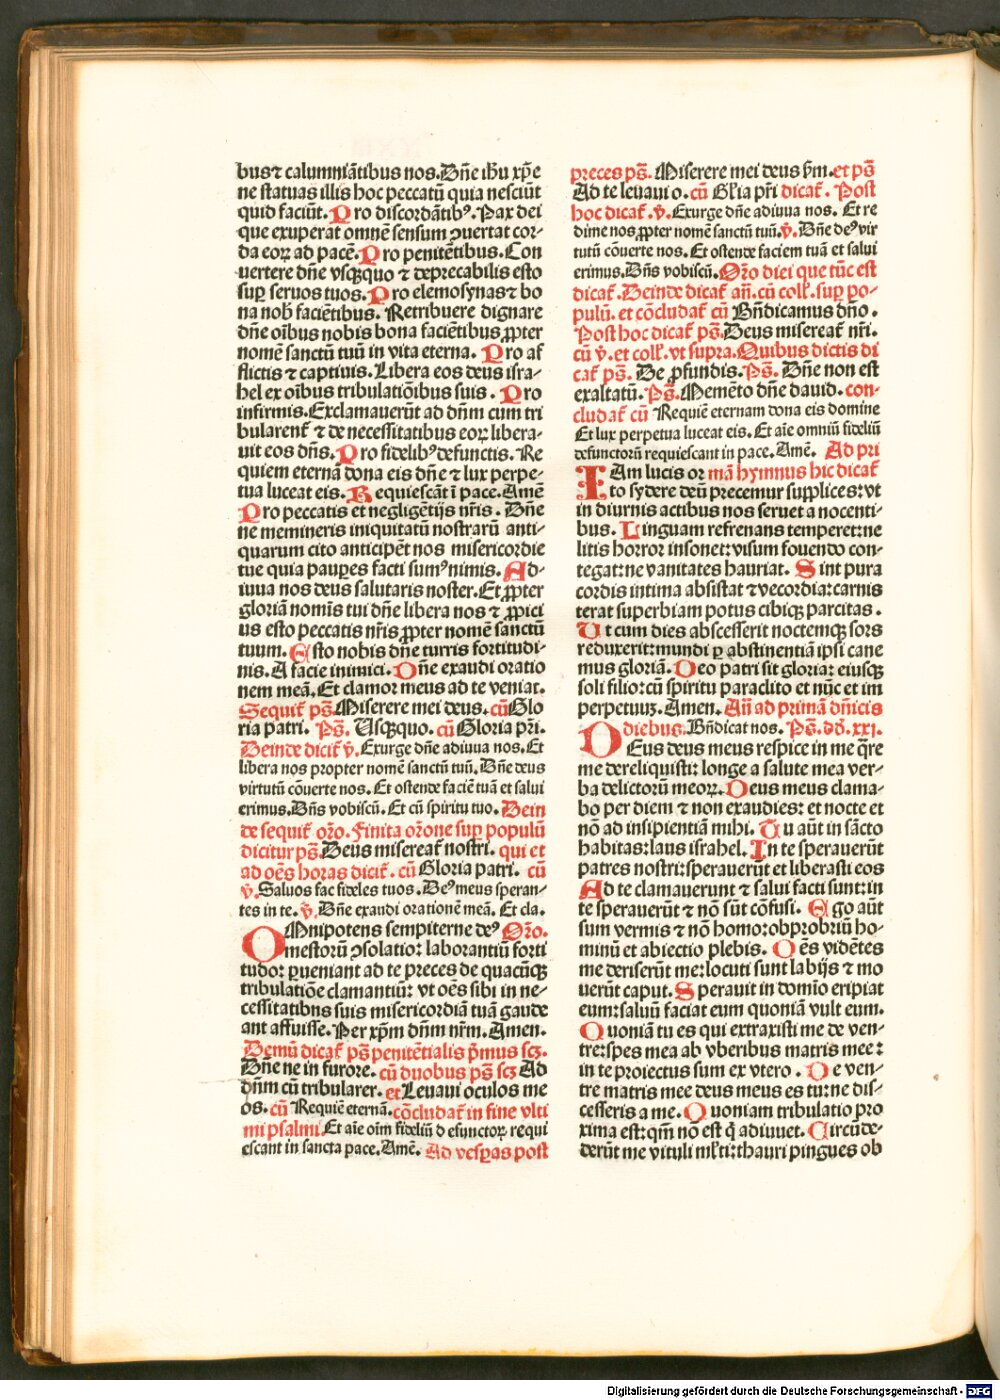 bus ⁊ calumniātibus nos. Dn̄e ih̄u xp̄e
ne statuas illis hoc peccatū quia nesciūt
quid faciūt. Pro discordātibꝰ. Pax dei
que exuperat omnē sensum ꝯuertat cor-
da eoꝝ ad pacē. Pro penitētibus. Con
uertere dn̄e vsq̄quo ⁊ deprecabilis esto
suꝑ seruos tuos. Pro elemosynas ⁊ bo
na nob̄ faciētibus. Retribuere dignare
dn̄e oībus nobis bona faciētibus ꝓpter
nomē sanctū tuū in vita eterna. Pro af
flictis ⁊ captiuis. Libera eos deus isra-
hel ex oībus tribulatiōibus suis. Pro
infirmis. Exclamauerūt ad dn̄m cum tri
bularent̄ ⁊ de necessitatibus eoꝝ libera-
uit eos dn̄s. Pro fidelibꝰ defunctis. Re
quiem eternā dona eis dn̄e ⁊ lux perpe-
tua luceat eis. Requiescāt ī pace. Amē
Pro peccatis et negligētijs nr̄is. Dn̄e
ne memineris iniquitatū nostrarū anti-
quarum cito anticipēt nos misericordie
tue quia pauꝑes facti sumꝰ nimis. Ad-
iuua nos deus salutaris noster. Et ꝓpter
gloriā nomīs tui dn̄e libera nos ⁊ ꝓpici
us esto peccatis nr̄is ꝓpter nomē sanctū
tuum. Esto nobis dn̄e turris fortitudi-
nis. A facie inimici. Dn̄e exaudi oratio
nem meā. Et clamor meus ad te veniat.
Sequit̄ ps̄. Miserere mei deus. cū Glo
ria patri. Ps̄. Usq̄quo. cū Gloria pr̄i.
Deinde dicit̄ v̄. Exurge dn̄e adiuua nos. Et
libera nos propter nomē sanctū tuū. Dn̄e deus
virtutū cōuerte nos. Et ostende faciē tuā et salui
erimus. Dn̄s vobiscū. Et cū spiritu tuo. Dein
de sequit̄ or̄o. Finita or̄one suꝑ populū
dicitur ps̄. Deus misereat̄ nostri. qui et
ad oēs horas dicit̄. cū Gloria patri. cū
v̄. Saluos fac fideles tuos. Deꝰ meus speran-
tes in te. v̄. Dn̄e exaudi orationē meā. Et cla.
OMnipotens sempiterne deꝰ Or̄o.
mestorū ꝯsolatio: laborantiū forti
tudo: ꝑueniant ad te preces de quacūq̄
tribulatiōe clamantiū: vt oēs sibi in ne-
cessitatibns suis misericordiā tuā gaude
ant affuisse. Per xp̄m dn̄m nr̄m. Amen.
Demū dicat̄ ps̄ penitētialis p̄mus scꝫ.
Dn̄e ne in furore. cū duobus ps̄ scꝫ Ad
dn̄m cū tribularer. et Leuaui oculos me
os. cū Requiē eternā. cōcludat̄ in fine vlti
mi psalmi Et aīe oīm fideliū defunctoꝝ requi
escant in sancta pace. Amē. Ad vesꝑas post
preces ps̄. Miserere mei deus ẜm. et ps̄
Ad te leuaui o. cū Gl̄ia pr̄i dicat̄. Post
hoc dicat̄. v̄. Exurge dn̄e adiuua nos. Et re
dime nos ꝓpter nomē sanctū tuū. v̄. Dn̄e deꝰ vir
tutū cōuerte nos. Et ostende faciem tuā et salui
erimus. Dn̄s vobiscū. Or̄o diei que tūc est
dicat̄. Deinde dicat̄ an̄. cū coll̄. suꝑ po-
pulū. et cōcludat̄ cū Bn̄dicamus dn̄o.
Post hoc dicat̄ ps̄. Deus misereat̄ nr̄i.
cū v̄. et coll̄. vt supra. Quibus dictis di
cat̄ ps̄. De ꝓfundis. Ps̄. Dn̄e non est
exaltatū. Ps̄. Memēto dn̄e dauid. con-
cludat̄ cū Requiē eternam dona eis domine
Et lux perpetua luceat eis. Et aīe omniū fideliū
defunctorū requiescant in pace. Amē. Ad pri
IAm lucis or mā hymnus hic dicat̄
to sydere deū precemur supplices: vt
in diurnis actibus nos seruet a nocenti-
bus. Linguam refrenans temperet: ne
litis horror insonet: visum fouendo con-
tegat: ne vanitates hauriat. Sint pura
cordis intima absistat ⁊ vecordia: carnis
terat superbiam potus cibiq̄ parcitas.
Ut cum dies abscesserit noctemq̄ sors
reduxerit: mundi ꝑ abstinentiā ipsi cane
mus gloriā. Deo patri sit gloria: eiusq̄
soli filio: cū spiritu paraclito et nūc et im
perpetuuꝫ. Amen. An̄ ad primā dn̄icis
diebus. Bn̄dicat nos. Ps̄. dd̄. xxi.
DEus deus meus respice in me q̄re
me dereliquisti: longe a salute mea ver-
ba delictorū meoꝝ. Deus meus clama-
bo per diem ⁊ non exaudies: et nocte et
nō ad insipientiā mihi. Tu aūt in sācto
habitas: laus israhel. In te sperauerūt
patres nostri: sperauerūt et liberasti eos
Ad te clamauerunt ⁊ salui facti sunt: in
te sperauerūt ⁊ nō sūt cōfusi. Ego aūt
sum vermis ⁊ nō homo: obprobriū ho-
minū et abiectio plebis. Oēs vidētes
me deriserūt me: locuti sunt labijs ⁊ mo
uerūt caput. Sperauit in domīo eripiat
eum: saluū faciat eum quoniā vult eum.
Quoniā tu es qui extraxisti me de ven-
tre: spes mea ab vberibus matris mee:
in te proiectus sum ex vtero. De ven-
tre matris mee deus meus es tu: ne dis-
cesseris a me. Quoniam tribulatio pro
xima est: qm̄ nō est q̇ adiuuet. Circūde-
derūt me vituli ml̄ti: thauri pingues ob
Digitalisierung gefördert durch die Deutsche Forschungsgemeinschaft - DFG